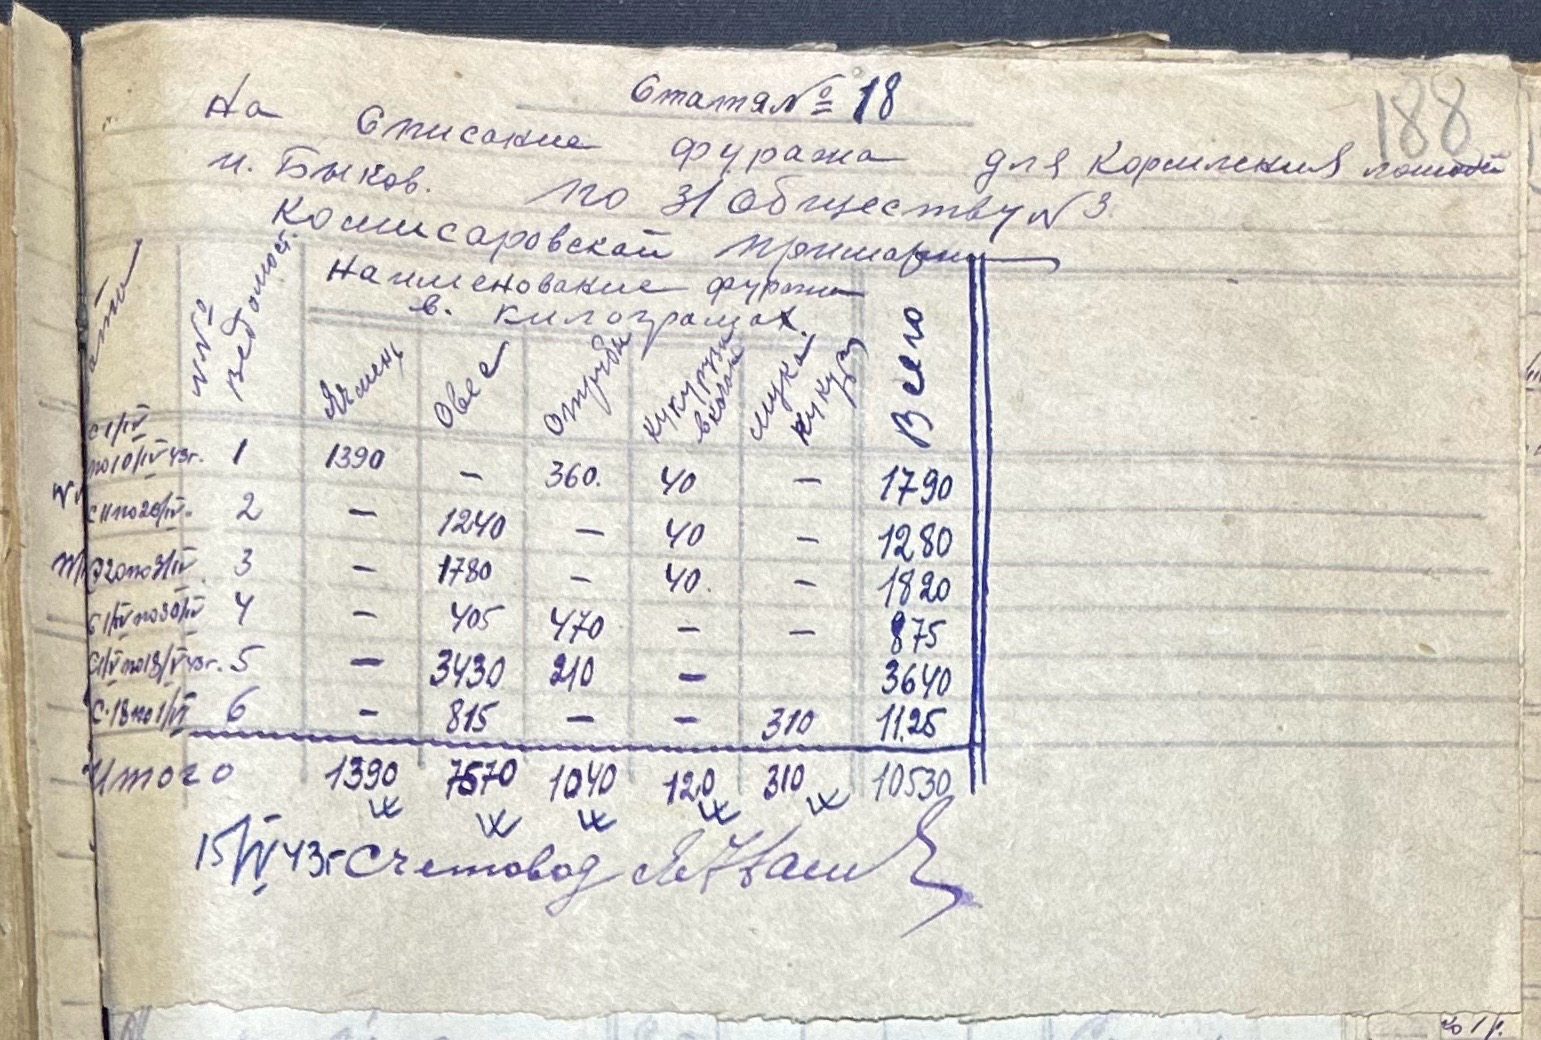 188
Статья № 18
На Списание фуража для кормления лошадей
и. Быков. по 3/Обществу № 3
Комисаровской примарии
№№ ведомост.
Наименование фуража
в. килограмах.
Всего
Ячмень Овес отруби кукуруза в качан. мука кукуруз
с 1/IV
по 10/IV 43г. 1 1390 — 360. 40 — 1790
с 11 по 20/IV. 2 — 1240 — 40 — 1280
3 — 1780 — 40. — 1820
4 — 405 470 — — 875
с 1/V по 18/V 43г. 5 — 3430 210 — 3640
с. 18 по 1/VI 6 — 815 — — 310 1125
Итого 1390 7570 1040 120 310 10530
43г Счетовод